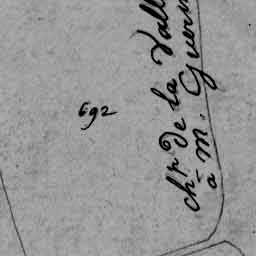 692
chp. de la Vall
a M. Guerin